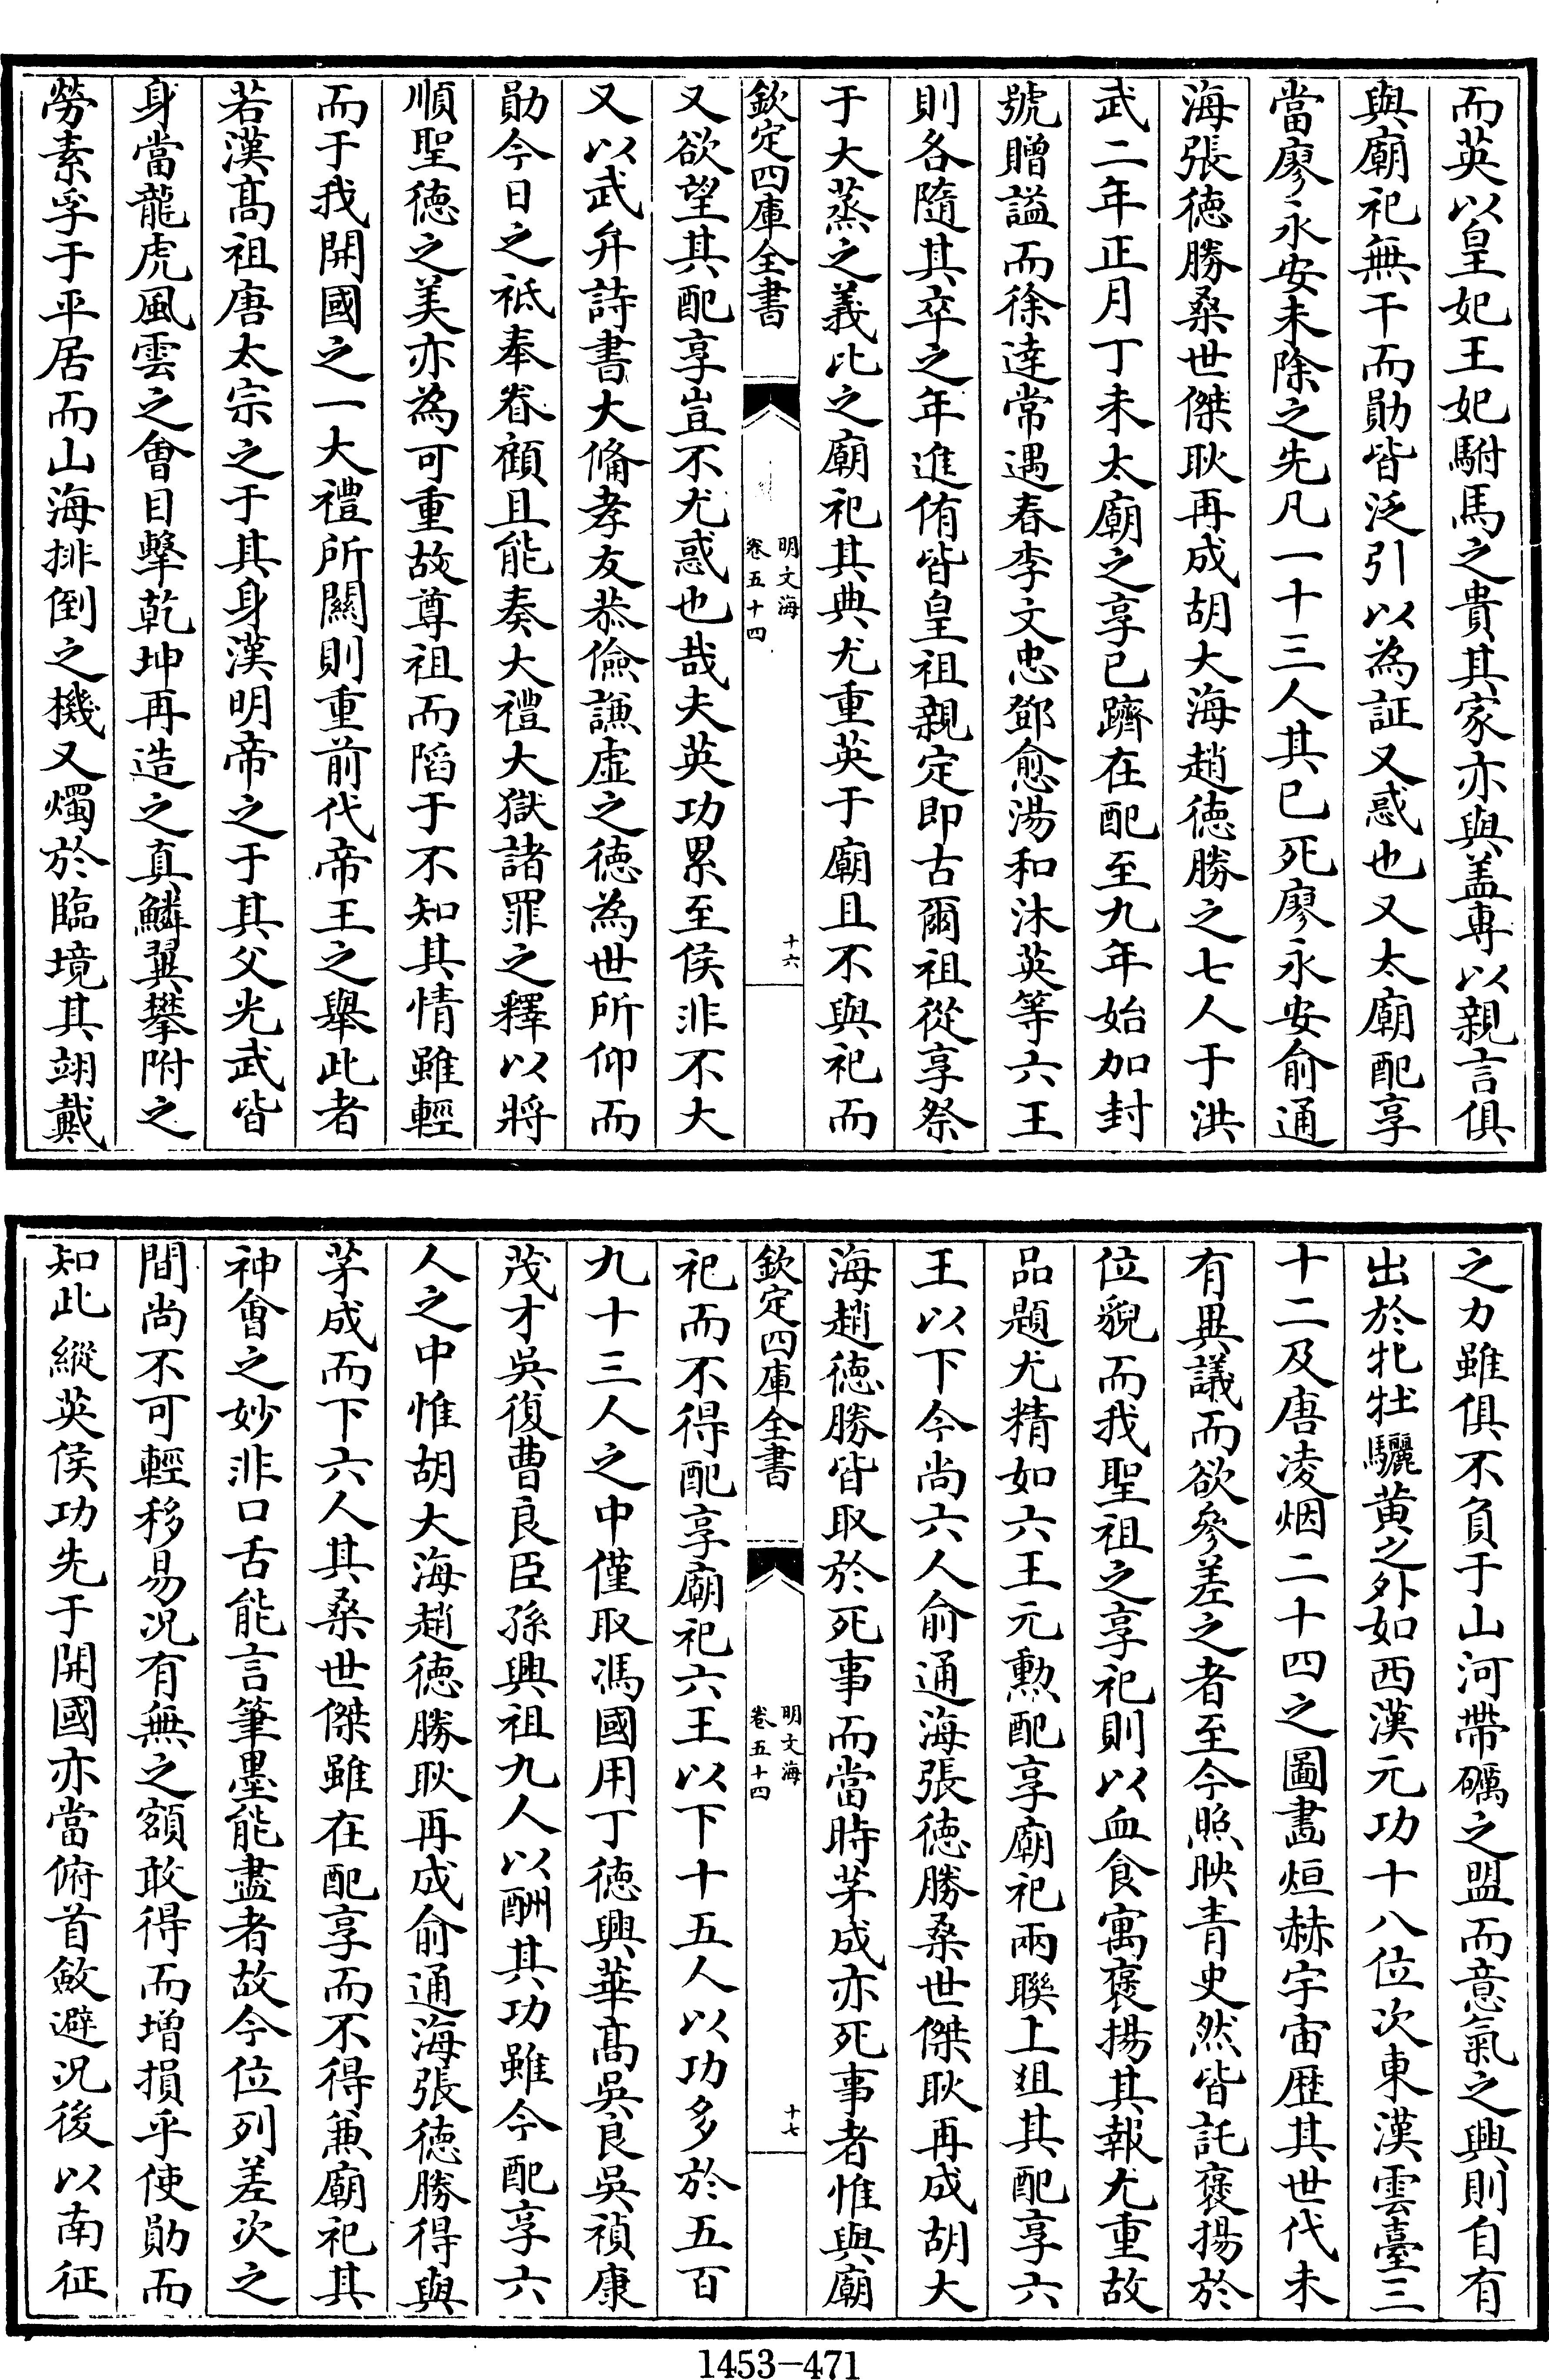 而英以皇妃王妃駙馬之貴其家亦與盖專以親言俱
與廟祀無干而勛皆泛引以為証又惑也又太廟配享
當廖永安未除之先凡一十三人其已死廖永安俞通
海張徳勝桑世傑耿再成胡大海趙徳勝之七人于洪
武二年正月丁未太廟之享已躋在配至九年始加封
號贈諡而徐逹常遇春李文忠鄧愈湯和沐英等六王
則各隨其卒之年進侑皆皇祖親定即古爾祖從享祭
于大蒸之義比之廟祀其典尤重英于廟且不與祀而
欽定四庫全書
明文海
卷五十四
十六
又欲望其配享豈不尤惑也哉夫英功累至侯非不大
又以武弁詩書大脩孝友恭儉謙虚之徳為世所仰而
勛今日之祗奉眷顧且能奏大禮大獄諸罪之釋以將
順聖徳之美亦為可重故尊祖而䧟于不知其情雖輕
而于我開國之一大禮所關則重前代帝王之舉此者
若漢髙祖唐太宗之于其身漢明帝之于其父光武皆
身當龍虎風雲之會目擊乾坤再造之真鱗翼攀附之
勞素孚于平居而山海排倒之機又燭於臨境其翊戴
之力雖俱不負于山河帶礪之盟而意氣之興則自有
出於牝牡驪黄之外如西漢元功十八位次東漢雲臺三
十二及唐凌烟二十四之圖畫烜赫宇宙歴其世代未
有異議而欲參差之者至今照映青史然皆託褒揚於
位貌而我聖祖之享祀則以血食寓褒揚其報尤重故
品題尤精如六王元勲配享廟祀兩聨上狙其配享六
王以下今尚六人俞通海張徳勝桑世傑耿再成胡大
海趙徳勝皆取於死事而當時茅成亦死事者惟與廟
欽定四庫全書
明文海
卷五十四
十七
祀而不得配享廟祀六王以下十五人以功多於五百
九十三人之中僅取馮國用丁徳興華髙吳良吳禎康
茂才吳復曹良臣孫興祖九人以酬其功雖今配享六
人之中惟胡大海趙徳勝耿再成俞通海張徳勝得與
茅成而下六人其桑世傑雖在配享而不得兼廟祀其
神會之妙非口舌能言筆墨能盡者故今位列差次之
間尚不可輕移易况有無之額敢得而增損乎使勛而
知此縱英侯功先于開國亦當俯首斂避况後以南征
1453-471